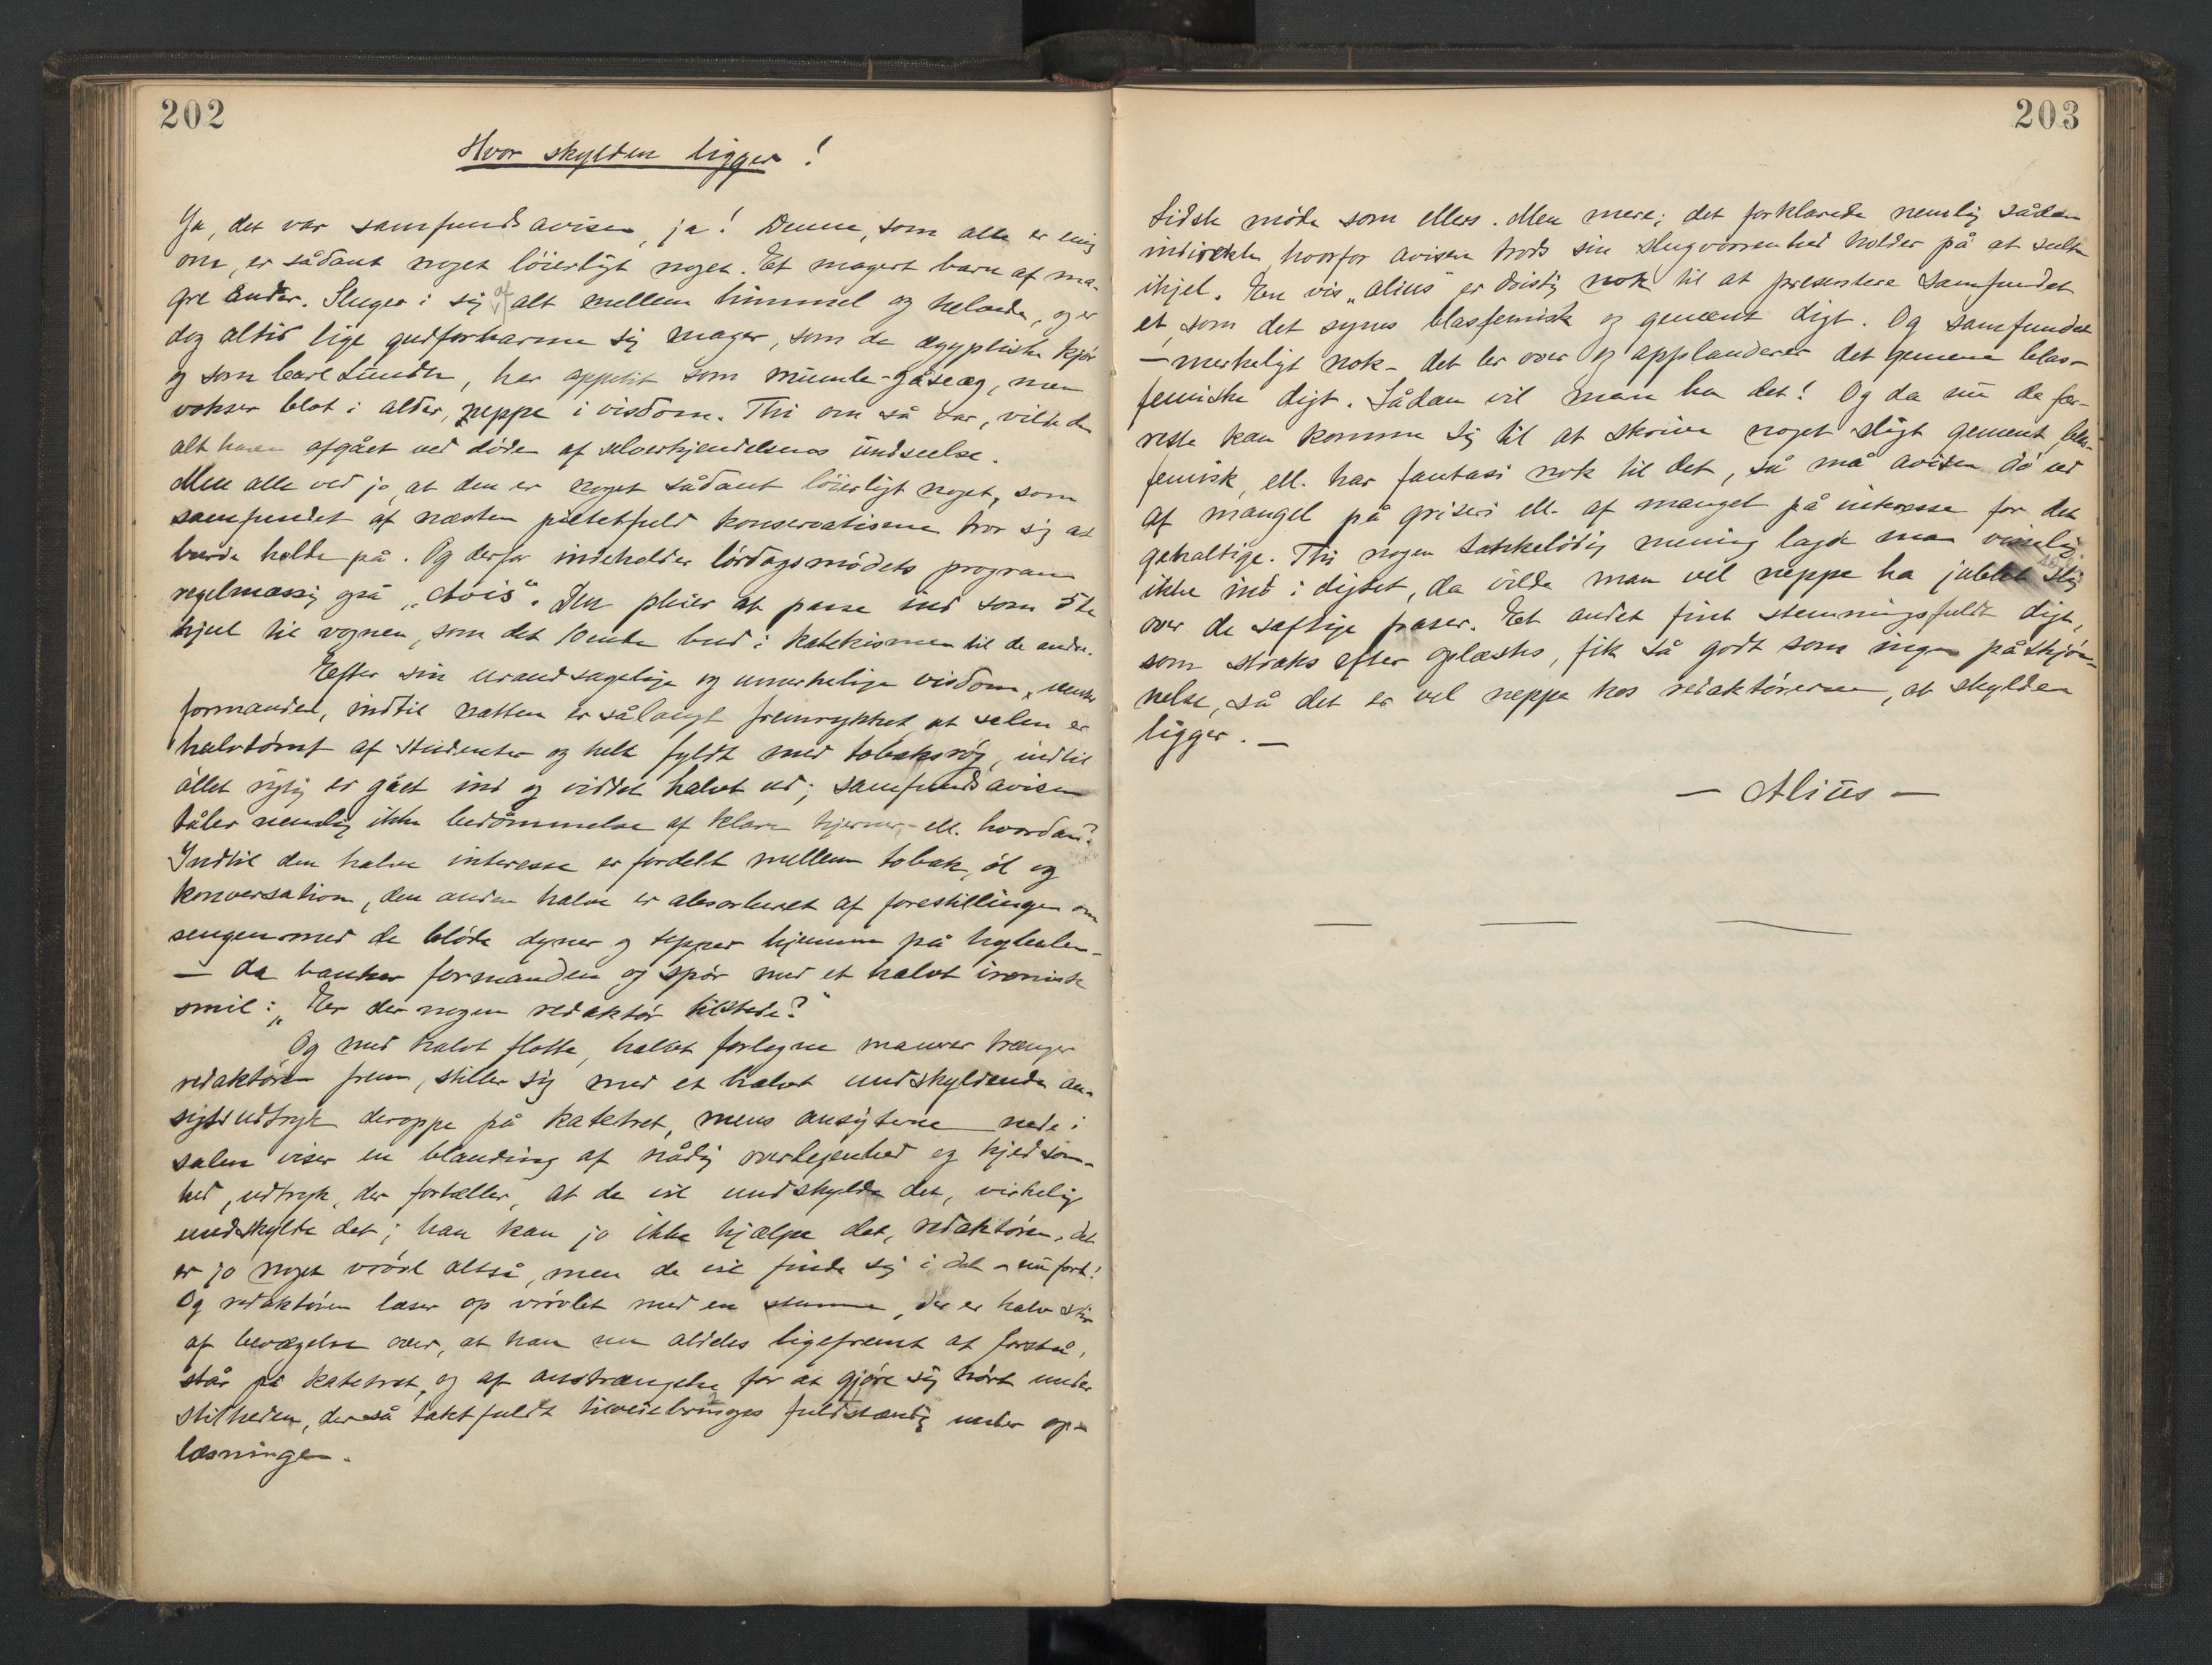 202
Hvor skylden ligger!
Ja, det var samfundsavisen, ja! Denne, som alle er enig
om, er sådant noget löierligt noget. Et magert barn af ma-
gre ænder. Sluger i sig af alt mellem himmel og helvede, og er
dog altid lige gudforbarme sig mager, som de ægyptiske kjör
og som Carl Lunder, har appetit som mumle-gåseæg, men
vokser blot i alder, neppe i visdom. Thi om så var, vilde den
alt have afgået ved döden af selverkjendelsens undseelse.
Men alle ved jo, at den er noget sådant löierligt noget, som
samfundet af næsten pietetfuld konservatisme tror sig at
burde holde på. Og derfor indeholder lördagsmödets program
regelmæssig også „Avis“. Den pleier at passe ind som 5te
hjul til vognen, som det 10ende bud i katekismen til de andre.
Efter sin urandsagelige og umerkelige visdom, venter
formanden, indtil natten er sålangt fremrykket, at salen er
halvtömt af studenter og helt fyldt med tobaksrög, indtil
öllet rigtig er gået ind og viddet halvt ud; samfundsavisen
tåler nemlig ikke bedömmelse af klare hjerner, ell. hvordan?
Indtil den halve interesse er fordelt mellem tobak, öl og
konversation, den anden halve er absorberet af forestillingen om
sengen med de blöde dyner og tepper hjemme på hybelen -
— da banker formanden og spör med et halvt ironisk
smil: „Er der nogen redaktör tilstede?“
Og med halvt flotte, halvt forlegne manerer trænger
redaktören frem, stiller sig med et halvt undskyldende an-
sigtsudtryk deroppe på katetret, mens ansigterne nede i
salen viser en blanding af nådig overlegenhed og kjedsom-
hed, udtryk, der fortæller, at de vil undskylde det, virkelig
undskylde det; han kan jo ikke hjælpe det, redaktören, det
er jo noget vrövl altså, men de vil finde sig i det - nu fort!
Og redaktören læser op vrövlet med en stemme, der er halv
af bevægelse over, at han nu aldeles ligefremt at forstå,
står på katetret, og af anstrængelse for at gjöre sig hört under
stilheden, der så taktfuldt tilveiebringes fuldstændig under op-
læsningen.
203
Sidste möde som ellers. Men mere; det forklarede nemlig sådan
indirekte, hvorfor avisen trods sin slugvorrenhed holder på at sulte
ihjel. En vis „Alius“ er dristig nok til at presentere Samfundet
et, som det synes blasfemisk og gement digt. Og samfundet
— merkeligt nok - det ler over og applauderer det gemene blas-
femiske digt. Sådan vil man ha det! Og da nu de fær-
reste kan komme sig til at skrive noget sligt gement, blas-
femisk, ell. har fantasi nok til det, så må avisen dö ud
af mangel på griseri ell. af mangel på interesse for det
gehaltige. Thi nogen tankelödig mening lagde man vistnok
ikke ind i digtet, da vilde man vel neppe ha jublet slig
over de saftige fraser. Et andet fint stemningsfuldt digt,
som straks efter oplæstes, fik så godt som ingen påskjön-
nelse, så det er vel neppe hos redaktörerne, at skylden
ligger. —
— Alius —